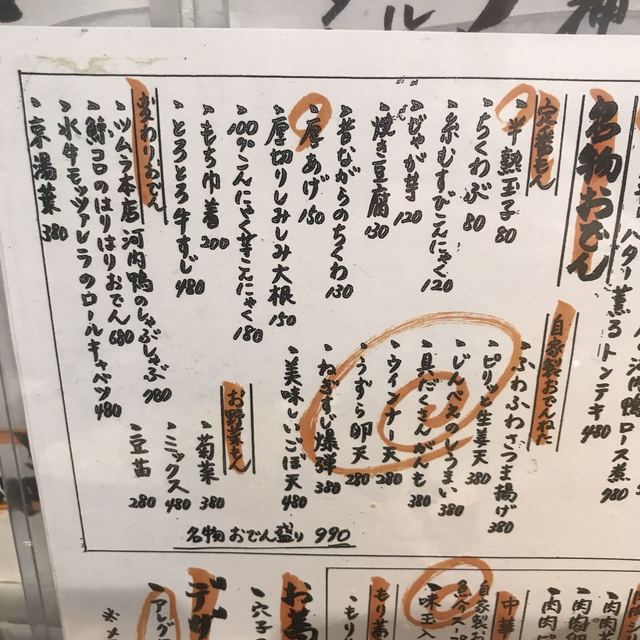 バター薫るトンテキ 480
名物おでん
定番もん
半熟玉子 80
ちくわぶ 80
糸むすびこんにゃく 120
じゃが芋 120
焼き豆腐 130
昔ながらのちくわ 130
厚あげ 150
厚切りしみしみ大根 150
100%こんにゃく芋こんにゃく 180
もち巾着 200
とろとろ牛すじ 480
変わりおでん
ツムラ本店 河内鴨のしゃぶしゃぶ 980
鯨コロのはりはりおでん 680
水牛モッツァレラのロールキャベツ 480
京湯葉 380
自家製おでんねた
ふわふわさつま揚げ 380
ピリッと生姜天 380
じんべえのしうまい 380
具だくさんがんも 380
ウィンナー天 280
うずら卵天 280
ねぎすじ爆弾 380
美味しいごぼ天 480
お野菜もん
菊菜 380
ミックス 480
豆苗 280
名物おでん盛り 990
中華
自家製お
味玉入